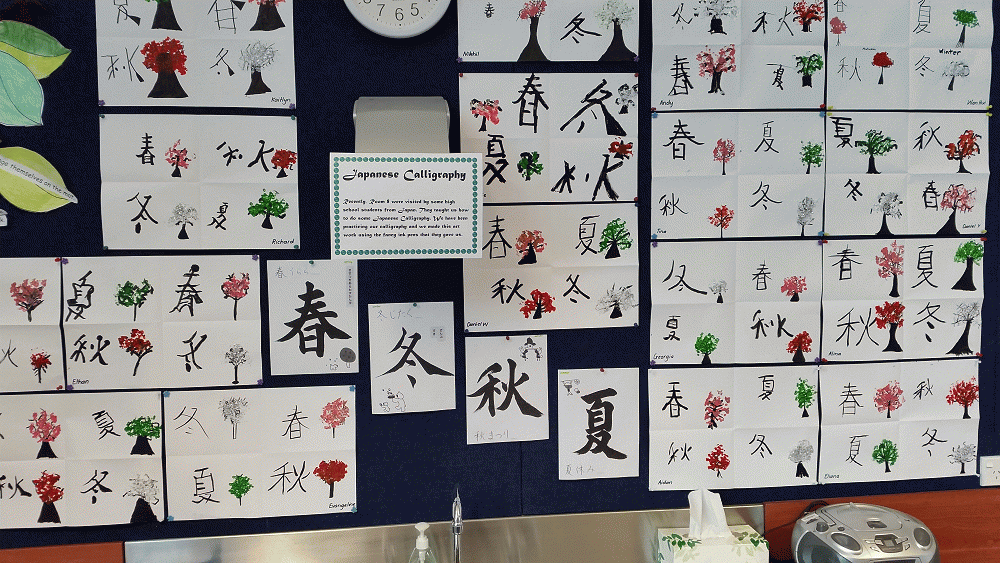 7 6 5
春
秋 冬
Kaitlyn
Nikhil
冬
春 秋
冬 夏
Richard
Japanese Calligraphy
Recently, Room 8 were visited by some high
school students from Japan. They taught us how
to do some Japanese Calligraphy. We have been
practicing our calligraphy and we made this art
work using the fancy ink pens that they gave us.
春 冬
夏 秋
春 夏
秋 冬
Daniel W
冬 秋
春 夏
Andy
夏
秋 冬
Winter
春 夏
秋 冬
夏 秋
冬 春
Daniel V
冬 春
夏 秋
Georgia
春 夏
秋 冬
Alina
夏 春
秋 冬
Ethan
春
冬
秋
秋まつり
夏
夏休み
夏
秋 冬
冬 春
夏 秋
Evangeline
春 夏
秋 冬
Aidan
春 秋
夏 冬
Eliana